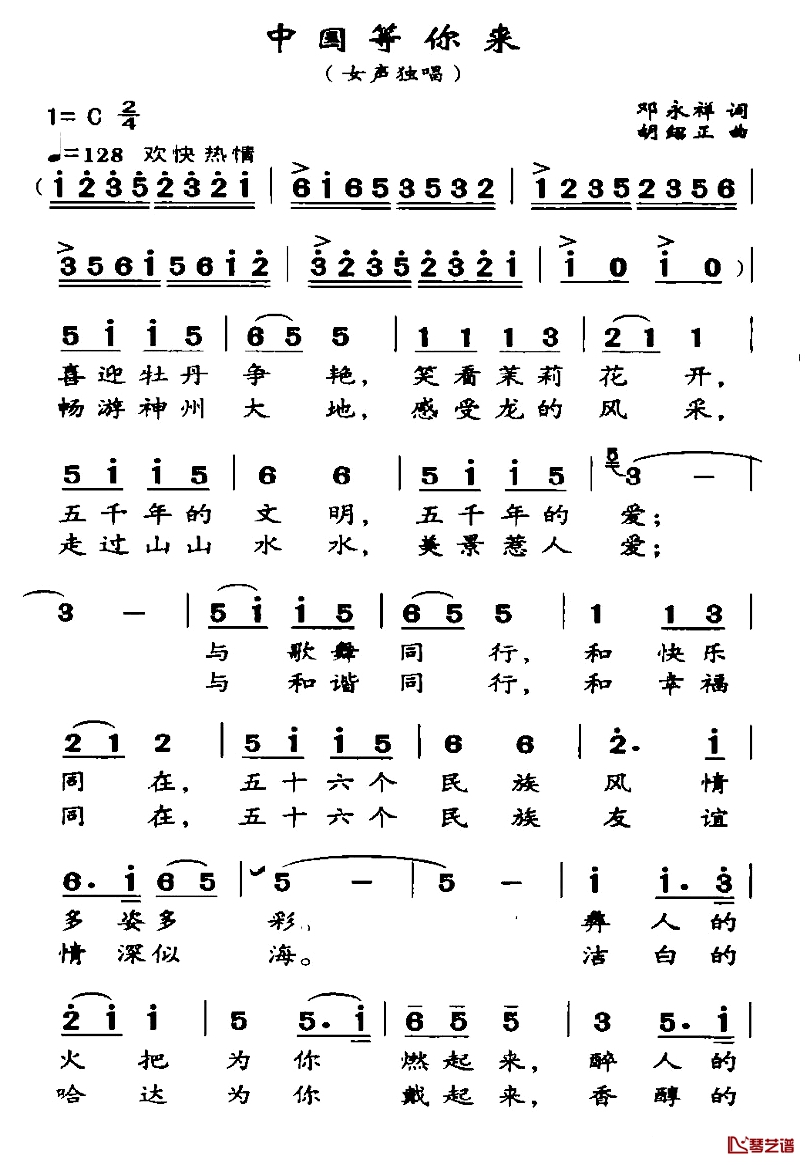 中国等你来
（女声独唱）
1= C 2/4
邓永祥 词
胡绍正 曲
♩=128 欢快 热情
（i̇ 2̇ 3̇ 5̇ 2̇ 3̇ 2̇ i̇ | 6 i̇ 6 5 3 5 3 2 | 1 2 3 5 2 3 5 6 |
3 5 6 i̇ 5 6 i̇ 2̇ | 3̇ 2̇ 3̇ 5̇ 2̇ 3̇ 2̇ i̇ | i̇ 0 i̇ 0 ）|
5 i̇ i̇ 5 | 6 5 5 | 1 1 1 3 | 2 1 1 |
喜迎牡丹争艳，笑看茉莉花开，
畅游神州大地，感受龙的风采，
5 i̇ i̇ 5 | 6 6 | 5 i̇ i̇ 5 | 5 3 − |
五千年的文明，五千年的爱；
走过山山水水，美景惹人爱；
3 − | 5 i̇ i̇ 5 | 6 5 5 | 1 1 3 |
与歌舞同行，和快乐
与和谐同行，和幸福
2 1 2 | 5 i̇ i̇ 5 | 6 6 | 2̇. i̇ |
同在，五十六个民族风情
同在，五十六个民族友谊
6. i̇ 6 5 | 5 − | 5 − | i̇ i̇. 3̇ |
多姿多彩。彝人的
情深似海。洁白的
2̇ i̇ i̇ | 5 5. i̇ | 6 5 5 | 3 5. i̇ |
火把为你燃起来，醉人的
哈达为你戴起来，香醇的
琴艺谱